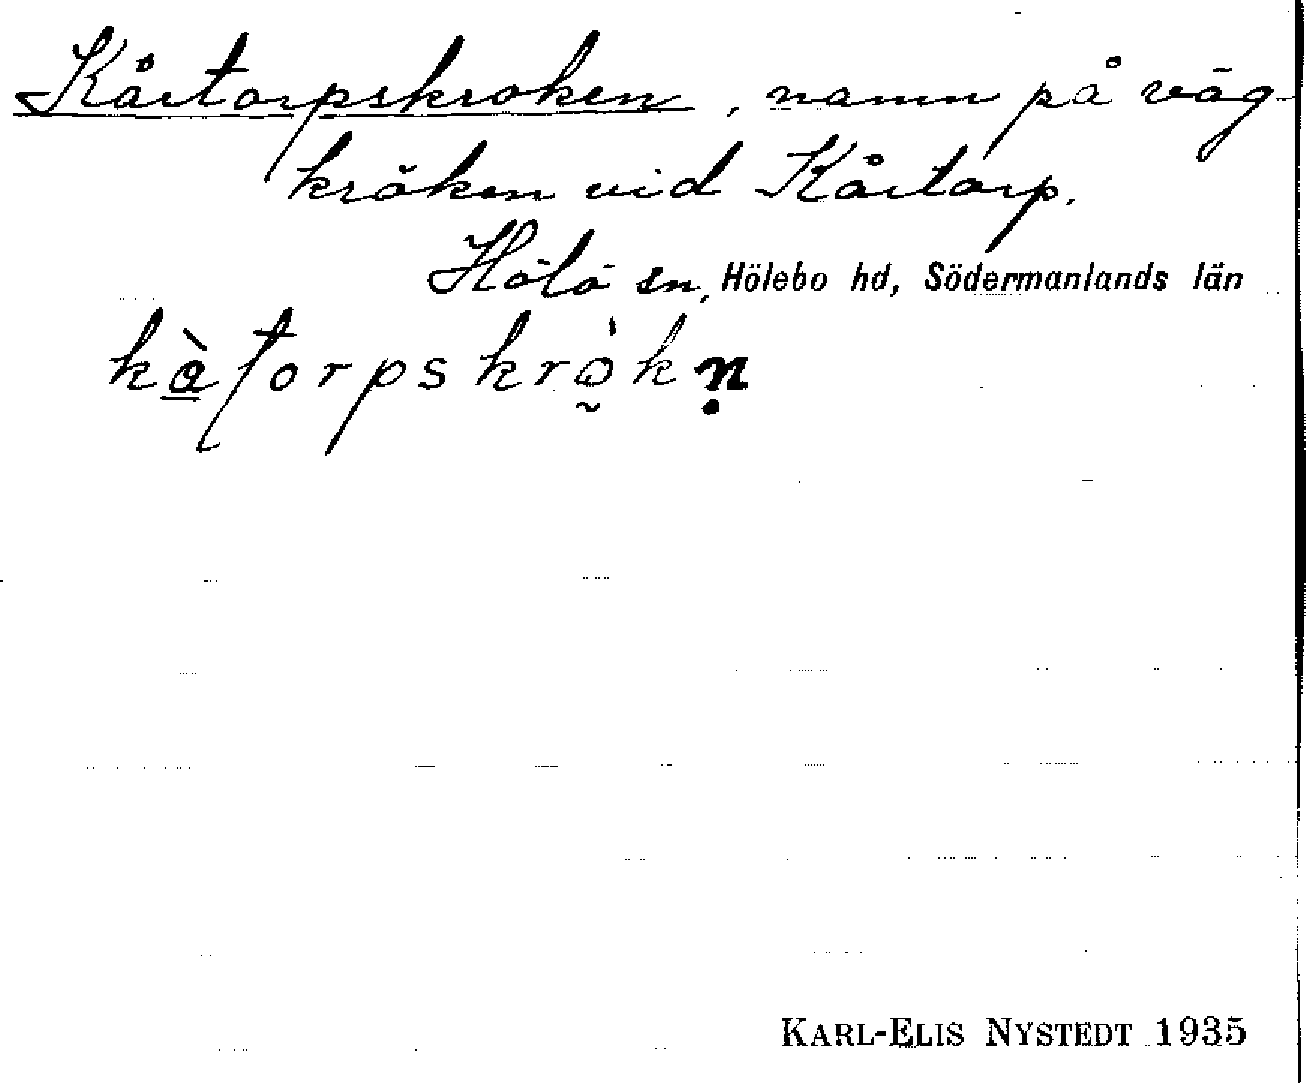 Kårtorpskroken, namn på väg-
kröken vid Kårtorp.
Hölö sn, Hölebo hd, Södermanlands län
kàʈorpskrò̰kṇ
KARL-ELIS NYSTEDT 1935